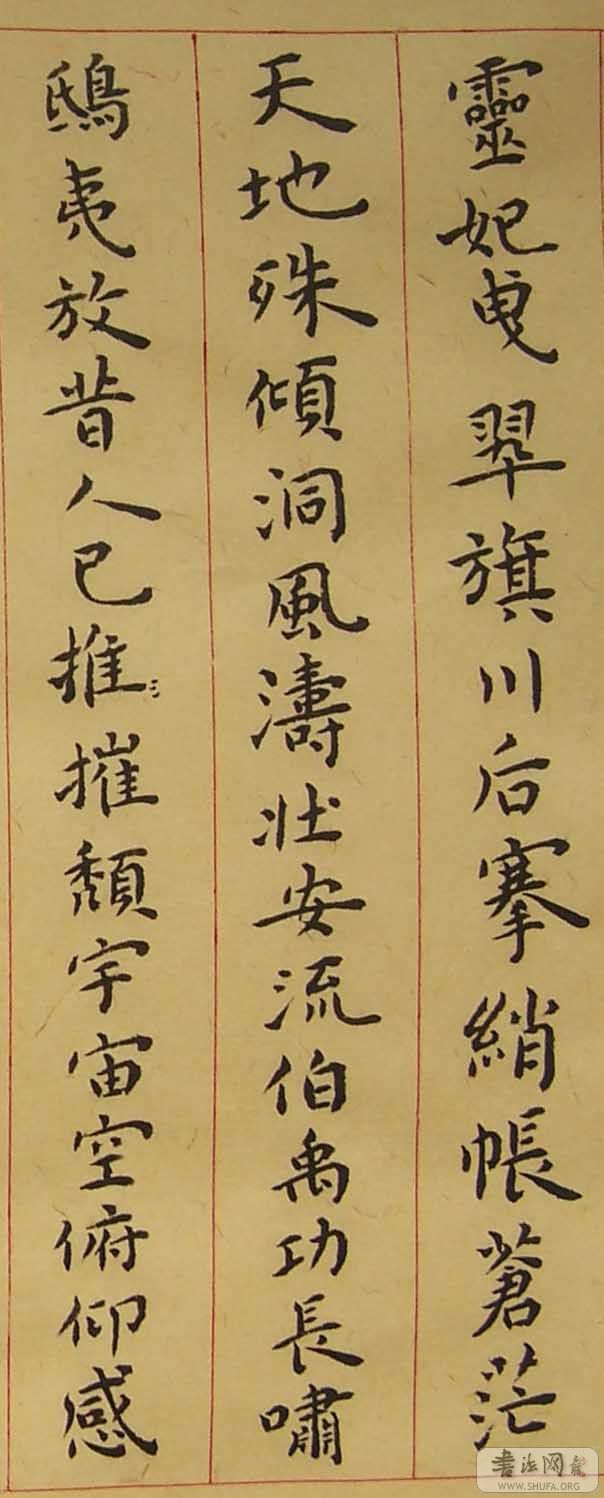 靈妃曳翠旗川后搴綃帳蒼茫
天地殊傾洞風濤壯安流伯禹功長嘯
鴟夷放昔人已推摧頹宇宙空俯仰感
书法网
WWW.SHUFA.ORG